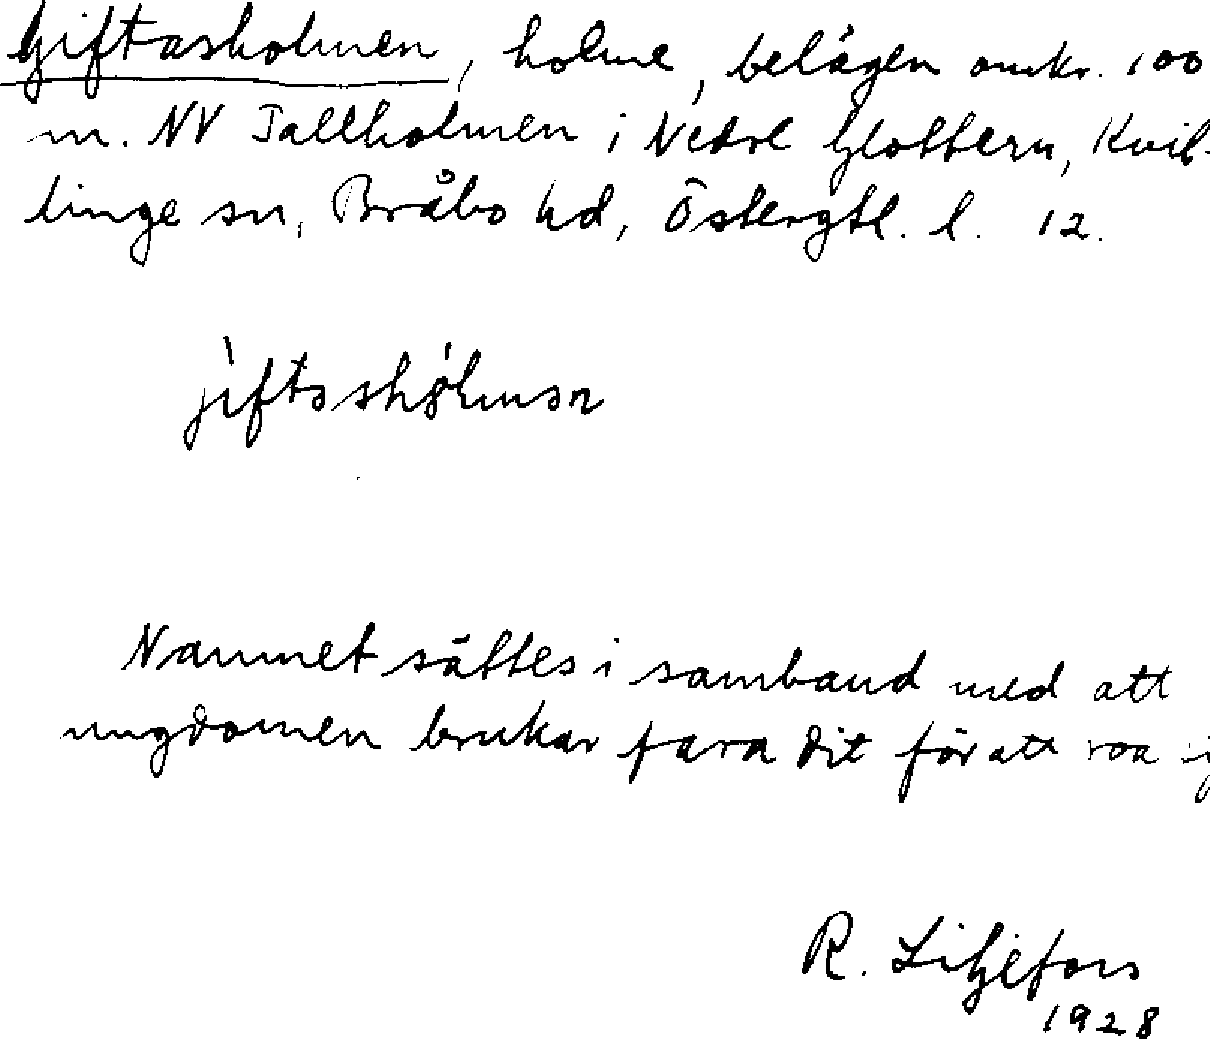 Giftasholmen, holme, belägen omkr. 100
m. NV Tallholmen i Nedre Glottern, Kvil-
linge sn, Bråbo hd, Östergtl. l. 12.
Namnet sättes i samband med att
ungdomen brukar fara dit för att roa
R. Liljefors
1928